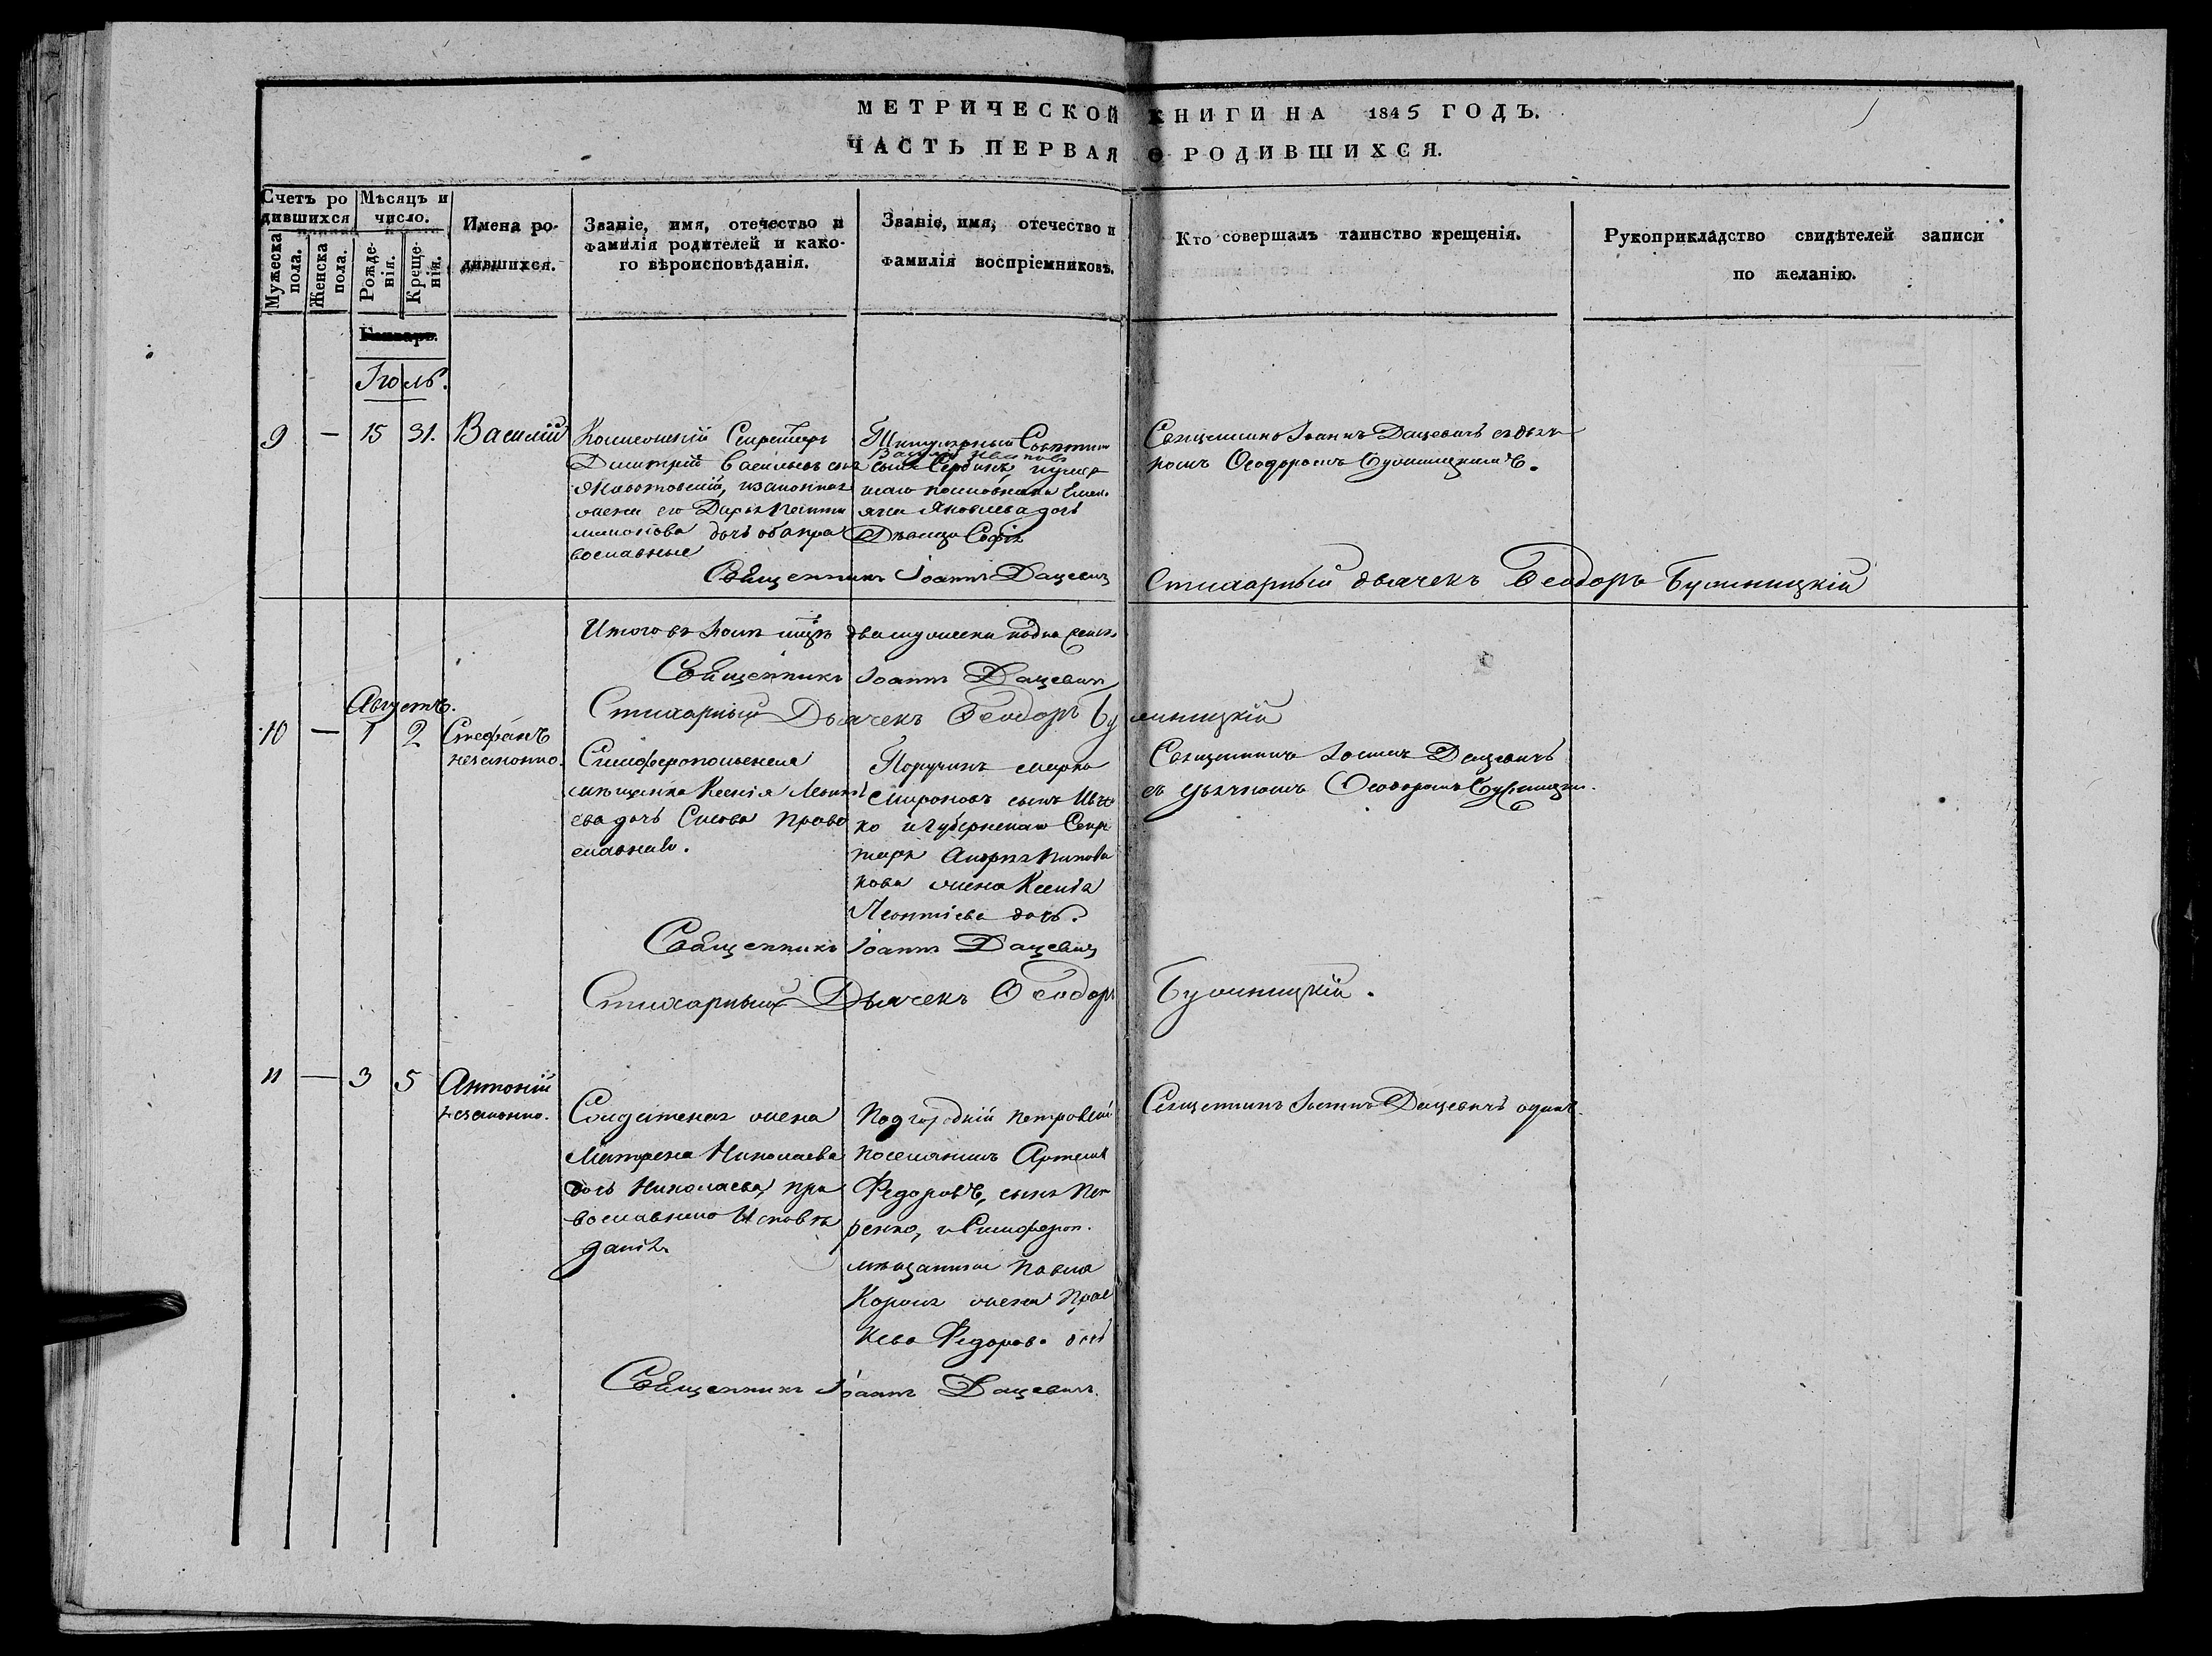 МЕТРИЧЕСКОЙ КНИГИ НА 1845 ГОДЪ.
ЧАСТЬ ПЕРВАЯ О РОДИВШИХСЯ.
Счетъ ро
дившихся
Мужеска
пола.
Женска
пола.
Мѣсяцъ и
число.
Рожде-
нія.
Креще-
нія.
Имена ро-
дившихся.
Званіе, имя, отечество и
фамилія родителей и како-
го вѣроисповѣданія.
Званіе, имя, отечество и
фамилія воспріемниковъ.
Кто совершалъ таинство крещенія.
Рукоприкладство свидѣтелей записи
по желанію.
Генварь.
Іюль.
9 — 15 31. Василій
Димитрій Васильевъ сынъ
жена его Дарья
дочь оба пра
вославные
Василій
сынъ Сербинъ
Яковлева дочь
Дѣвица Софія
Священникъ Іоаннъ Дацевичъ съ дьяч
комъ Ѳеодоромъ Бужиницкимъ.
Священникъ Іоаннъ Дацевичъ
Стихарный дьячекъ Ѳеодоръ Бужиницкій
Итого въ Іюлѣ мцѣ два мужеска и одна женск.
Священникъ Іоаннъ Дацевичъ
Стихарный Дьячекъ Ѳеодоръ Бужиницкій
Августъ.
10 — 1 2 Стефанъ
незаконно.
Симферопольская
мѣщанка Ксенія Леонть
ева дочь право
славная.
Поручикъ Марко
Мироновъ сынъ Ивч
ко и Губернскаго Секре
таря Андрея
кова жена Ксенія
Леонтіева дочь.
Священникъ Іоаннъ Дацевичъ
съ дьячкомъ Ѳеодоромъ Бужиницким.
Священникъ Іоаннъ Дацевичъ
Стихарный Дьячекъ Ѳеодоръ Бужиницкій.
11 — 3 5 Антоній
незаконно.
Солдатская жена
Матрена Николаева
дочь Николаева, пра
вославнаго Исповѣ
данія
Подгородній Петровскій
поселянинъ Артемій
Федоровъ, сынъ Пет
ренко, и Симфероп.
мѣщанина Павла
Короля жена Прас
кева Федорова дочь
Священникъ Іоаннъ Дацевичъ одинъ.
Священникъ Іоаннъ Дацевичъ.